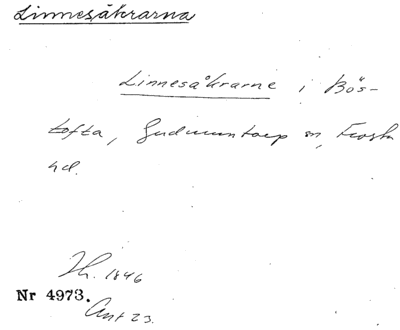 Linnesåkrarna
Linnesåkrarne i Bös-
tofta, Gudmuntorp sn, Frosta
hd.
Th. 1846
Nr 4973.
Ant 23.